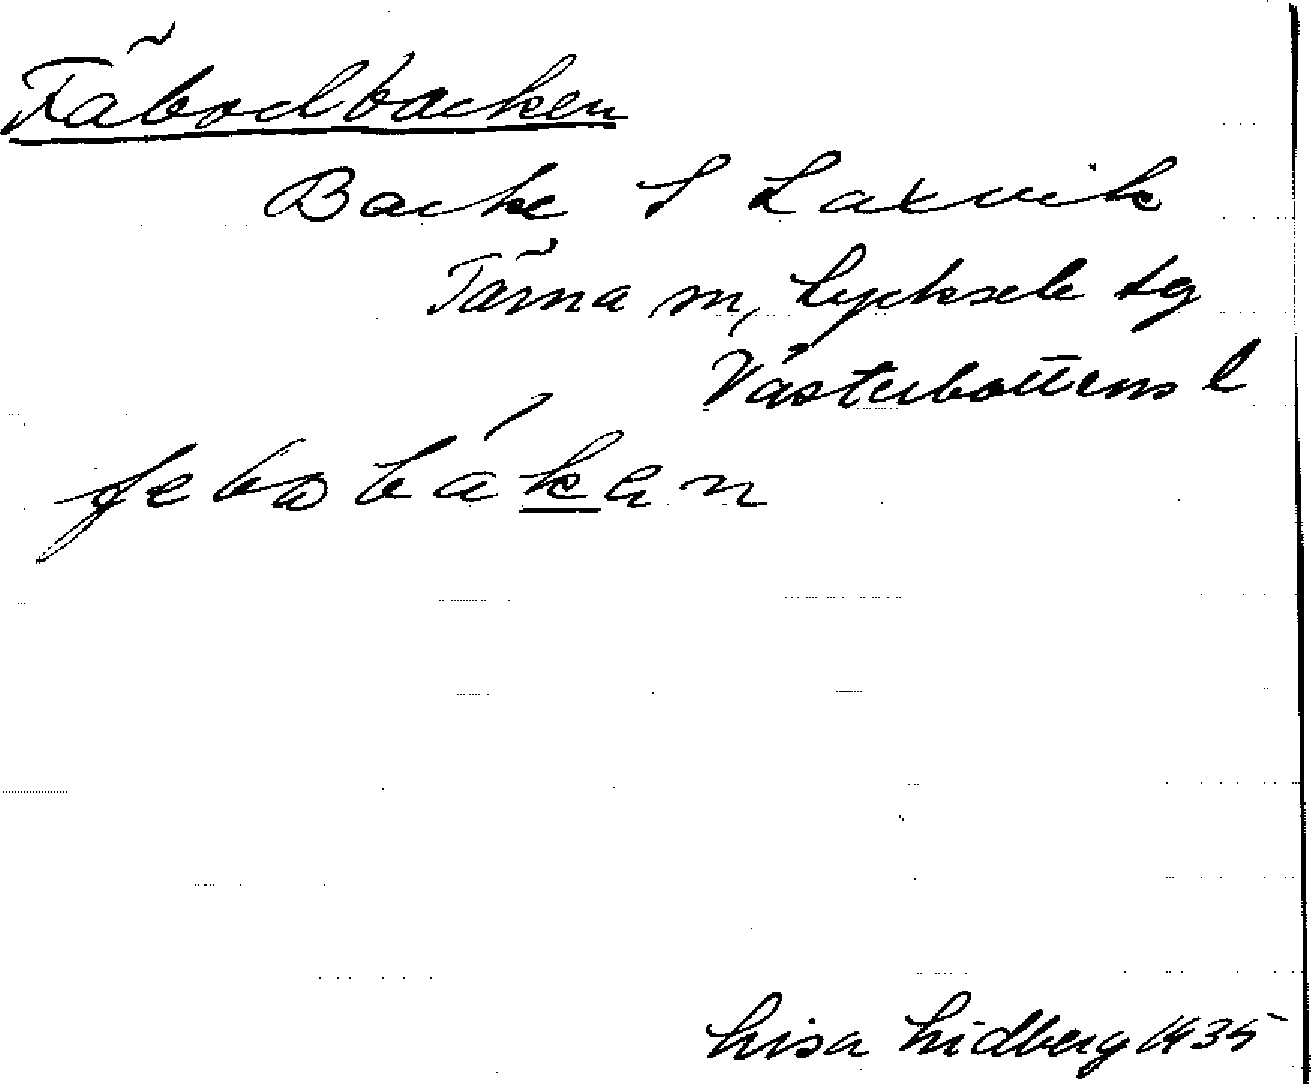 Fäbodbacken
Backe S Laxvik
Tärna sn, Lycksele tg
Västerbottens l
febobáken
Lisa Lidberg 1935